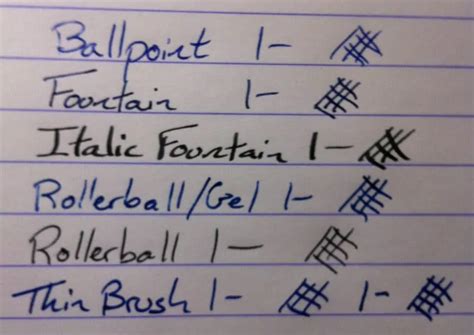 Ballpoint 1-
Fountain 1-
Italic Fountain 1-
Rollerball/Gel 1-
Rollerball 1-
Thin Brush 1- 1-